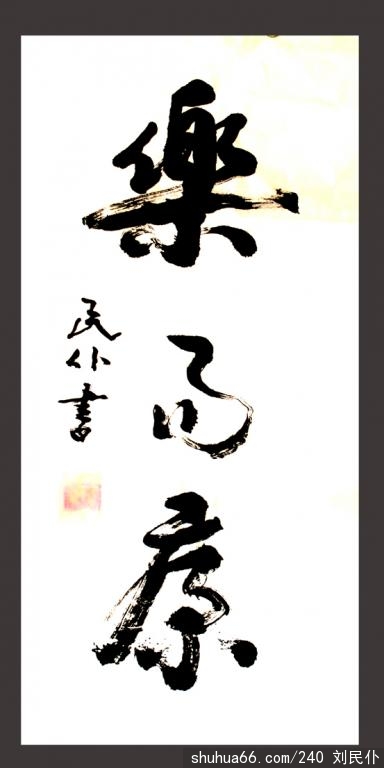 樂康
民仆書
shuhua66.com/240 刘民仆